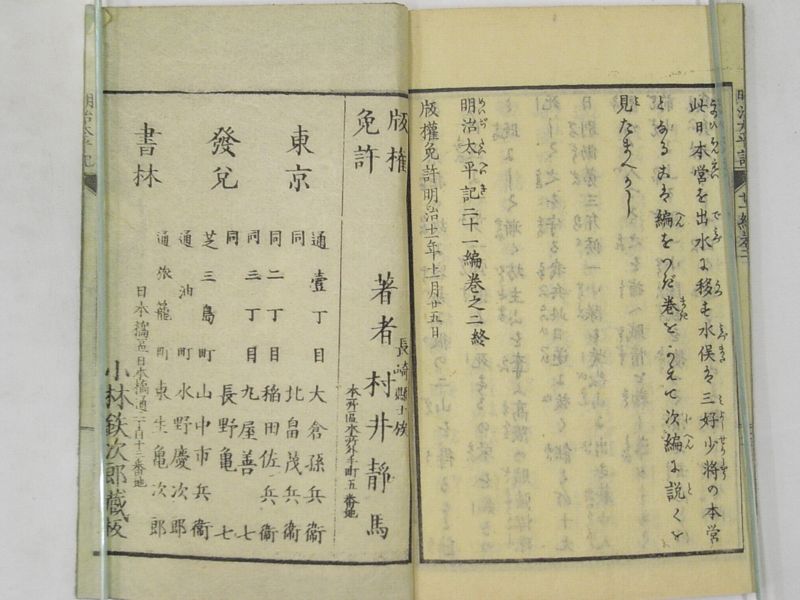 明治太平記
十一編巻二
此日本営を出水に移も水俣は三好少将の本営
となる尚編をつぎ巻をかへて次編に説くを
見たまへかし
明治太平記二十一編巻之二終
版權免許明治十一年十一月廿五日
版權
免許
長崎縣士族
著者村井靜馬
本所區本所外手町五番地
東京
發兌
書林
通壹丁目大倉孫兵衞
同 北畠茂兵衞
同二丁目稲田佐兵衞
同三丁目丸屋善七
同 長野亀七
芝三島町山中市兵衞
通油町水野慶次郎
通旅籠町東生亀次郎
日本橋區日本橋通三丁目十三番地
小林鉄次郎蔵板
明治太平記